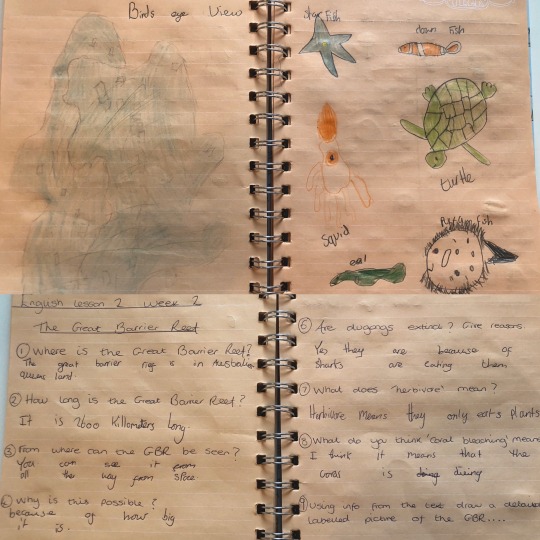 Birds eye View
Star fish
clown fish
turtle
Squid
Puffer fish
eel
English lesson 2 Week 2
The Great Barrier Reef
① Where is the Great Barrier Reef?
The great barrier rief is in Australian
queens land.
② How long is the Great Barrier Reef?
It is 2600 Killometers long.
③ From where can the GBR be seen?
You can see it from
all the way from space
④ Why is this possible?
because of how big
it is.
⑤ Are dugongs extinct? Give reasons.
Yes they are because of
sharks are eating them
⑦ What does 'herbivore' mean?
Herbivore means they only eats plants
⑧ What do you think 'coral bleaching' means
I think it means that the
coral is dieing
⑨ Using info from the text draw a detailed
labelled picture of the GBR....